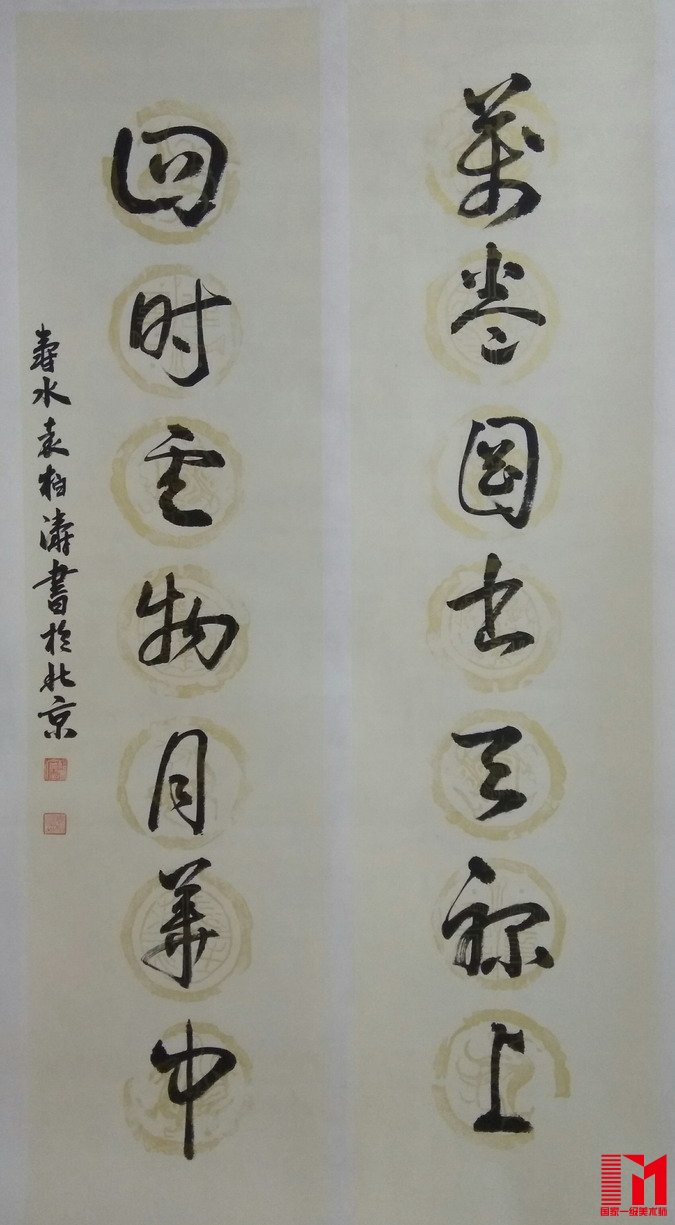 萬卷圖书天禄上
四时云物月華中
壽水袁柏濤書於北京
国家一级美术师